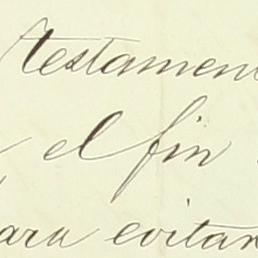 testamen
el fin
para evitar